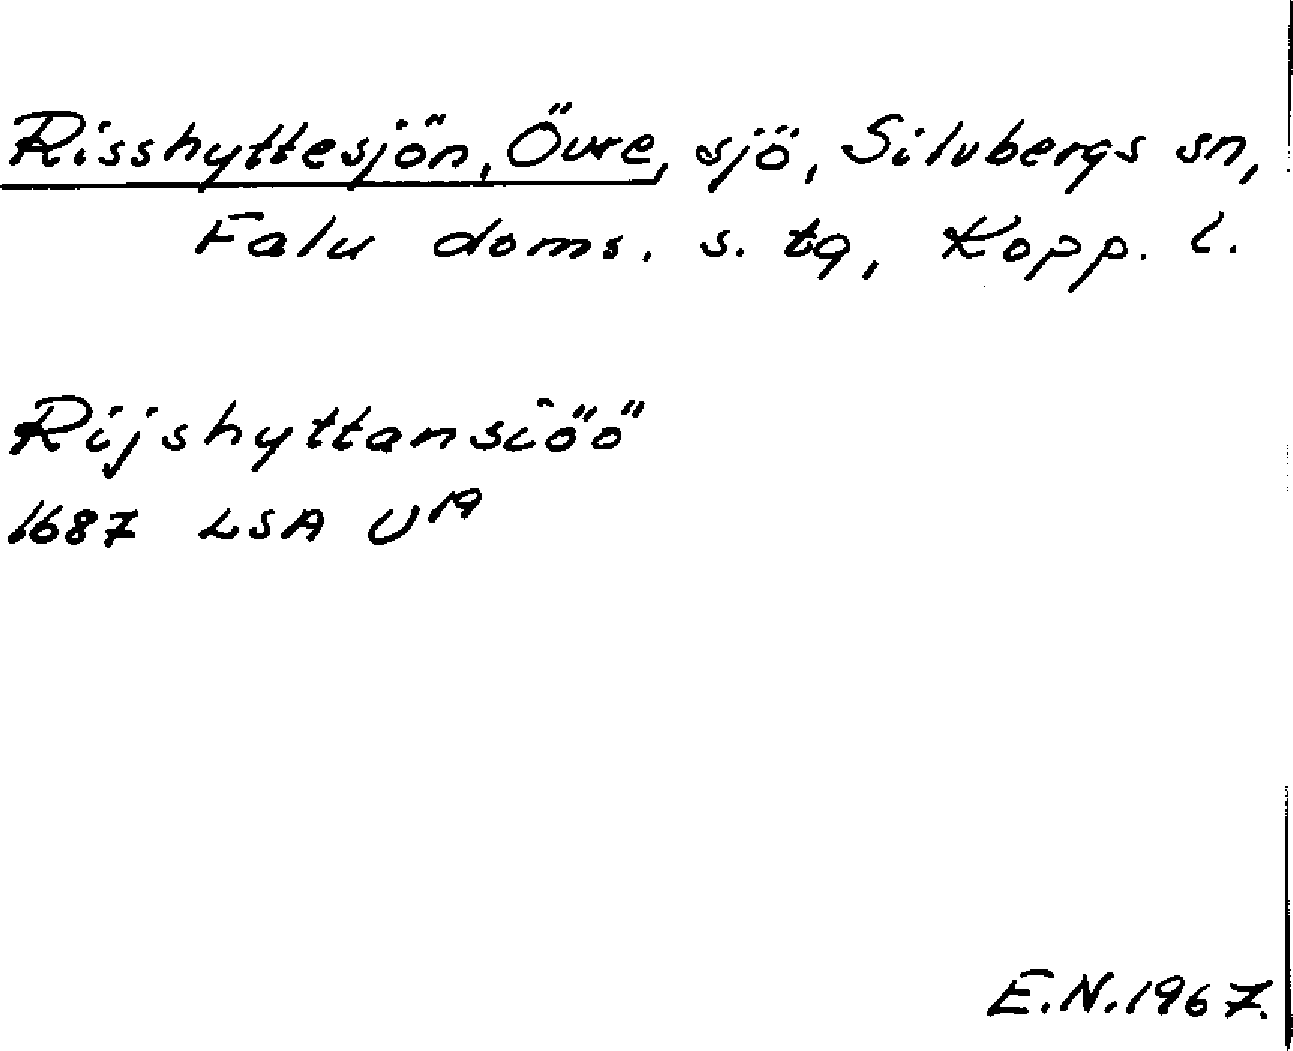 Risshyttesjön, Övre, sjö, Silvbergs sn,
Falu doms. s. tg, Kopp. l.
Rijshyttansiöö
1687 LSA U¹⁹
E.N. 1967.